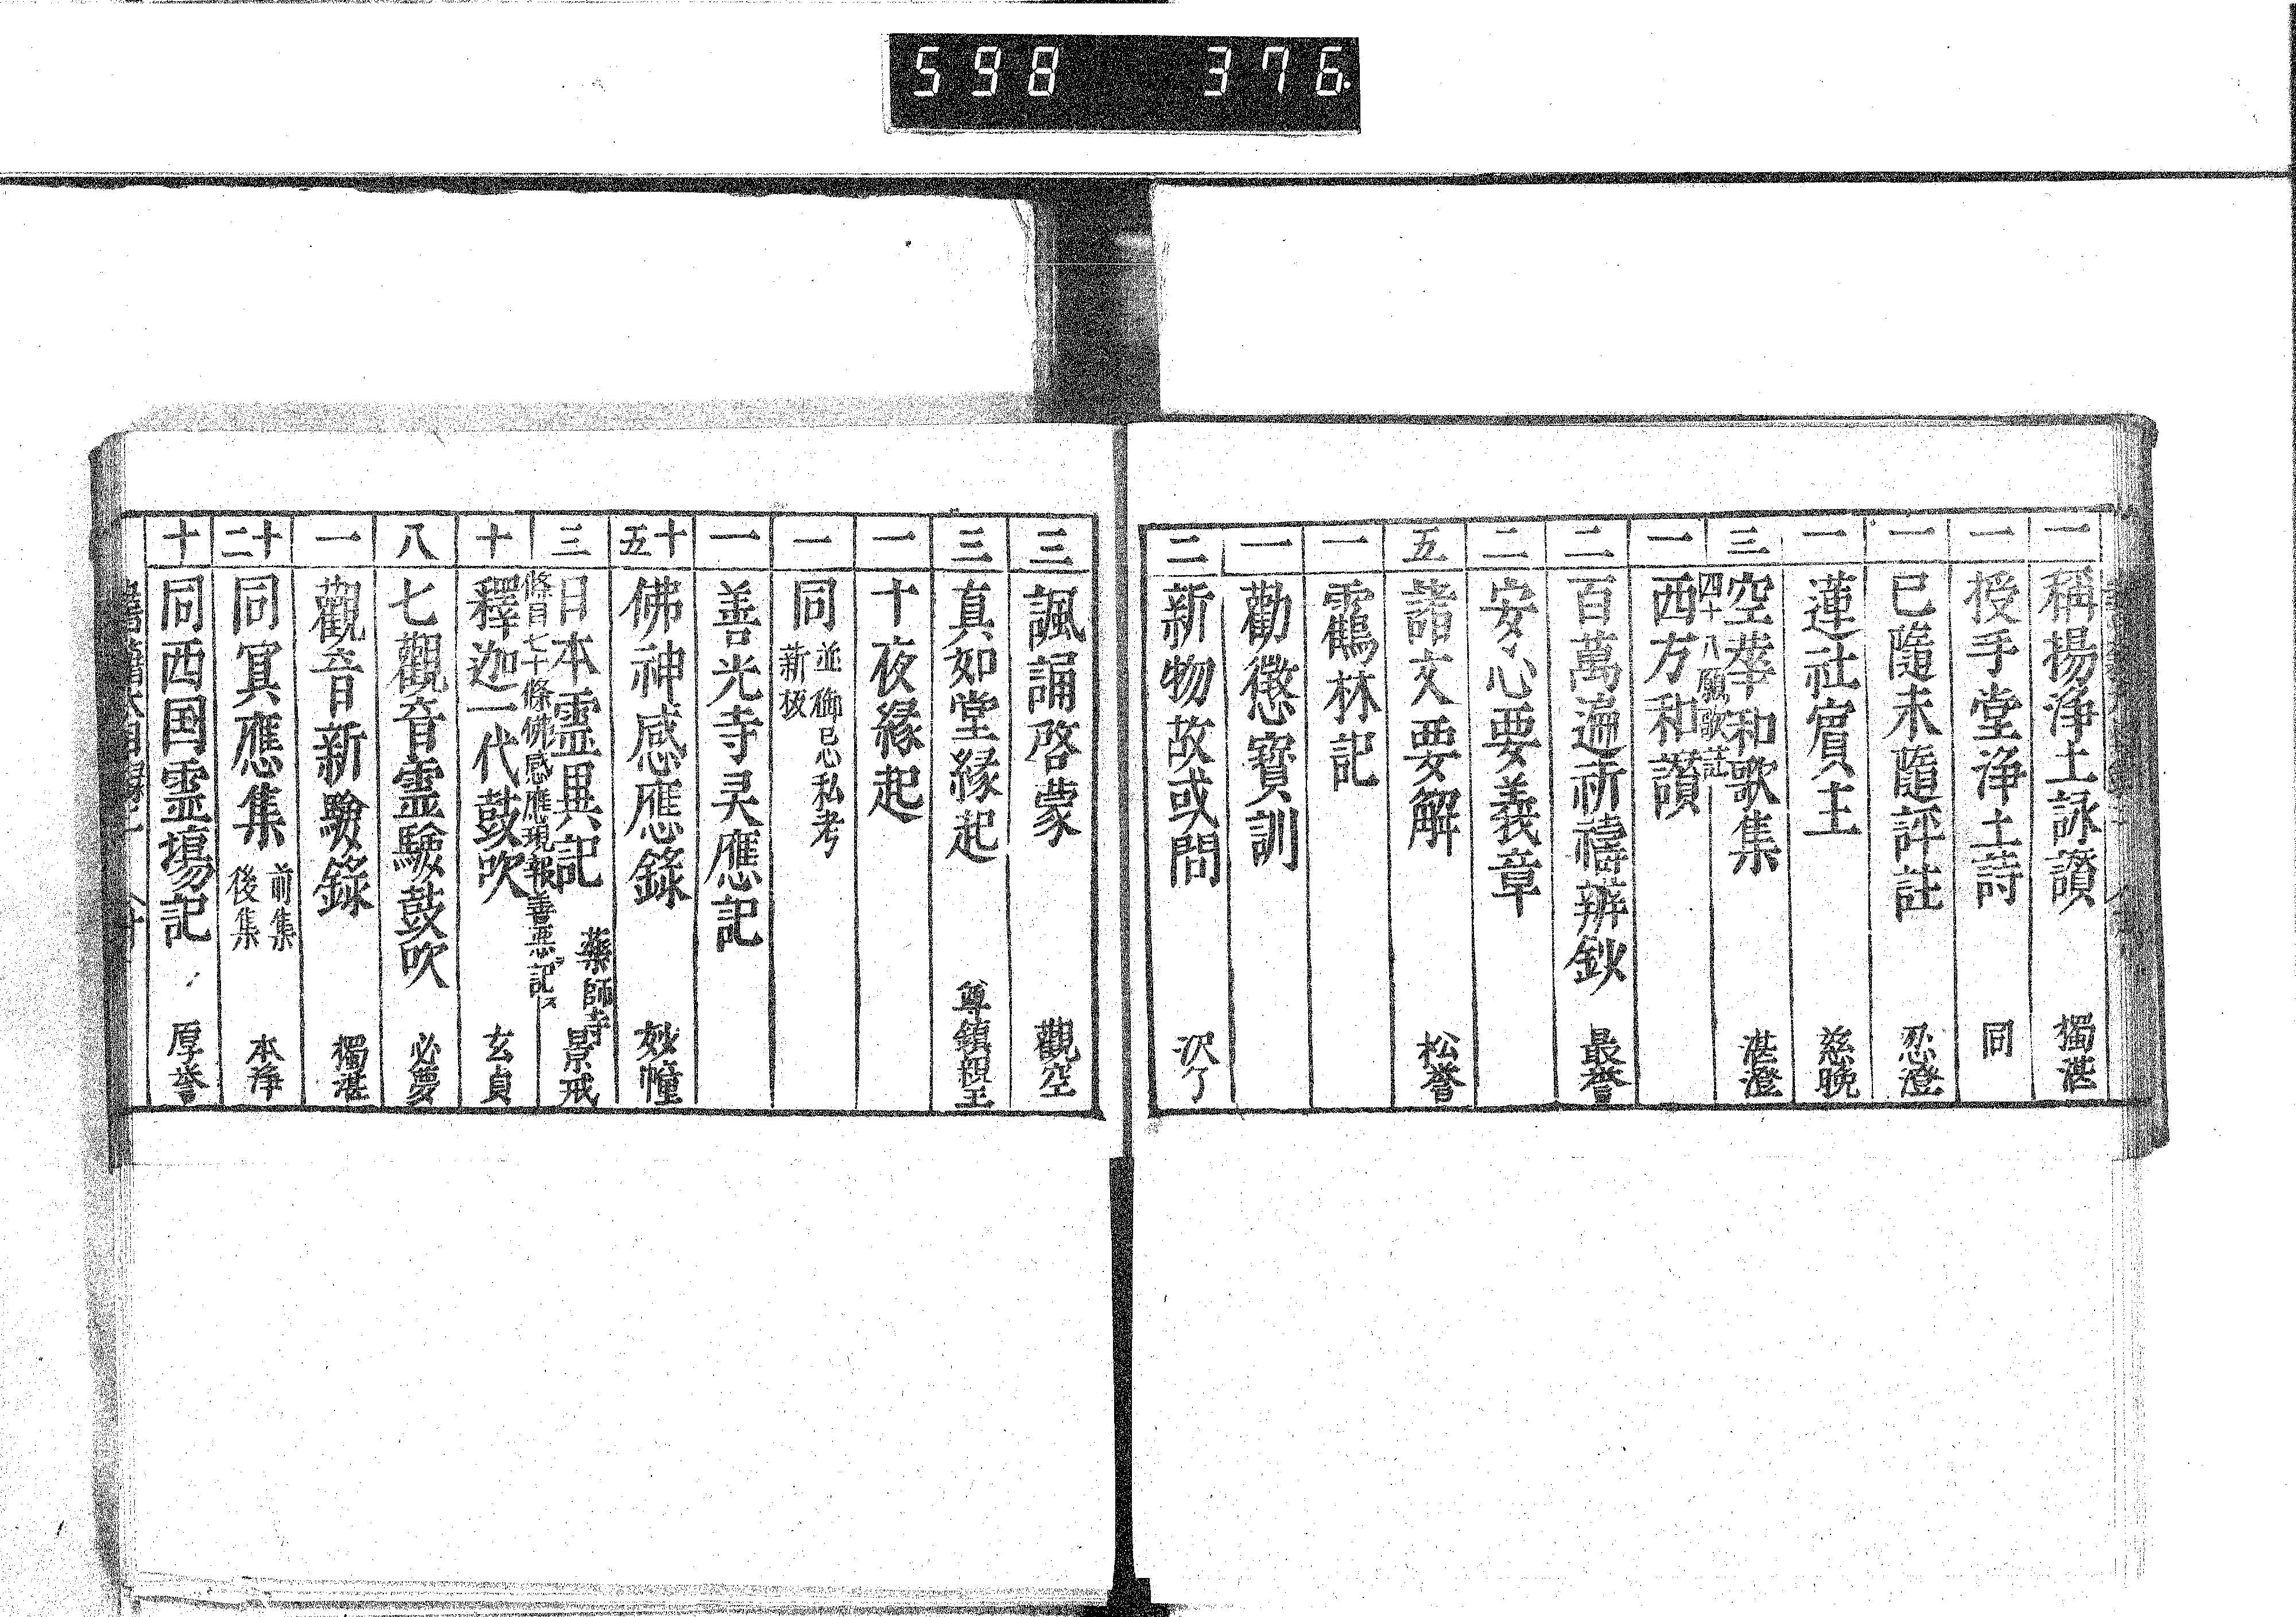 598 376
一 稱揚浄土詠讃 獨湛
一 授手堂浄土詩 同
一 已隨未隨評註 忍澄
一 蓮社賓主 慈晩
三 空華和歌集 湛澄
四十八願歌註
一 西方和讃
二 百萬遍祈禱辨鈔 最誉
二 安心要義章
五 諸文要解 松誉
一 靏林記
一 勸懲寶訓
二 新物故或問 沢了
三 諷誦啓蒙 觀空
三 真如堂縁起 尊鎮親王
一 十夜縁起
一 同 並御忌私考 新板
一 善光寺灵應記
十五 佛神感應錄 妙幢
三 日本霊異記 藥師寺景戒
條目七十條佛感應現報善悪ヲ記ス
十 釋迦一代鼓吹 玄貞
八 七觀音霊驗鼓吹 必夢
一 觀音新驗錄 獨湛
十二 同冥應集 前集 後集 本浄
十 同西国霊場記 厚誉